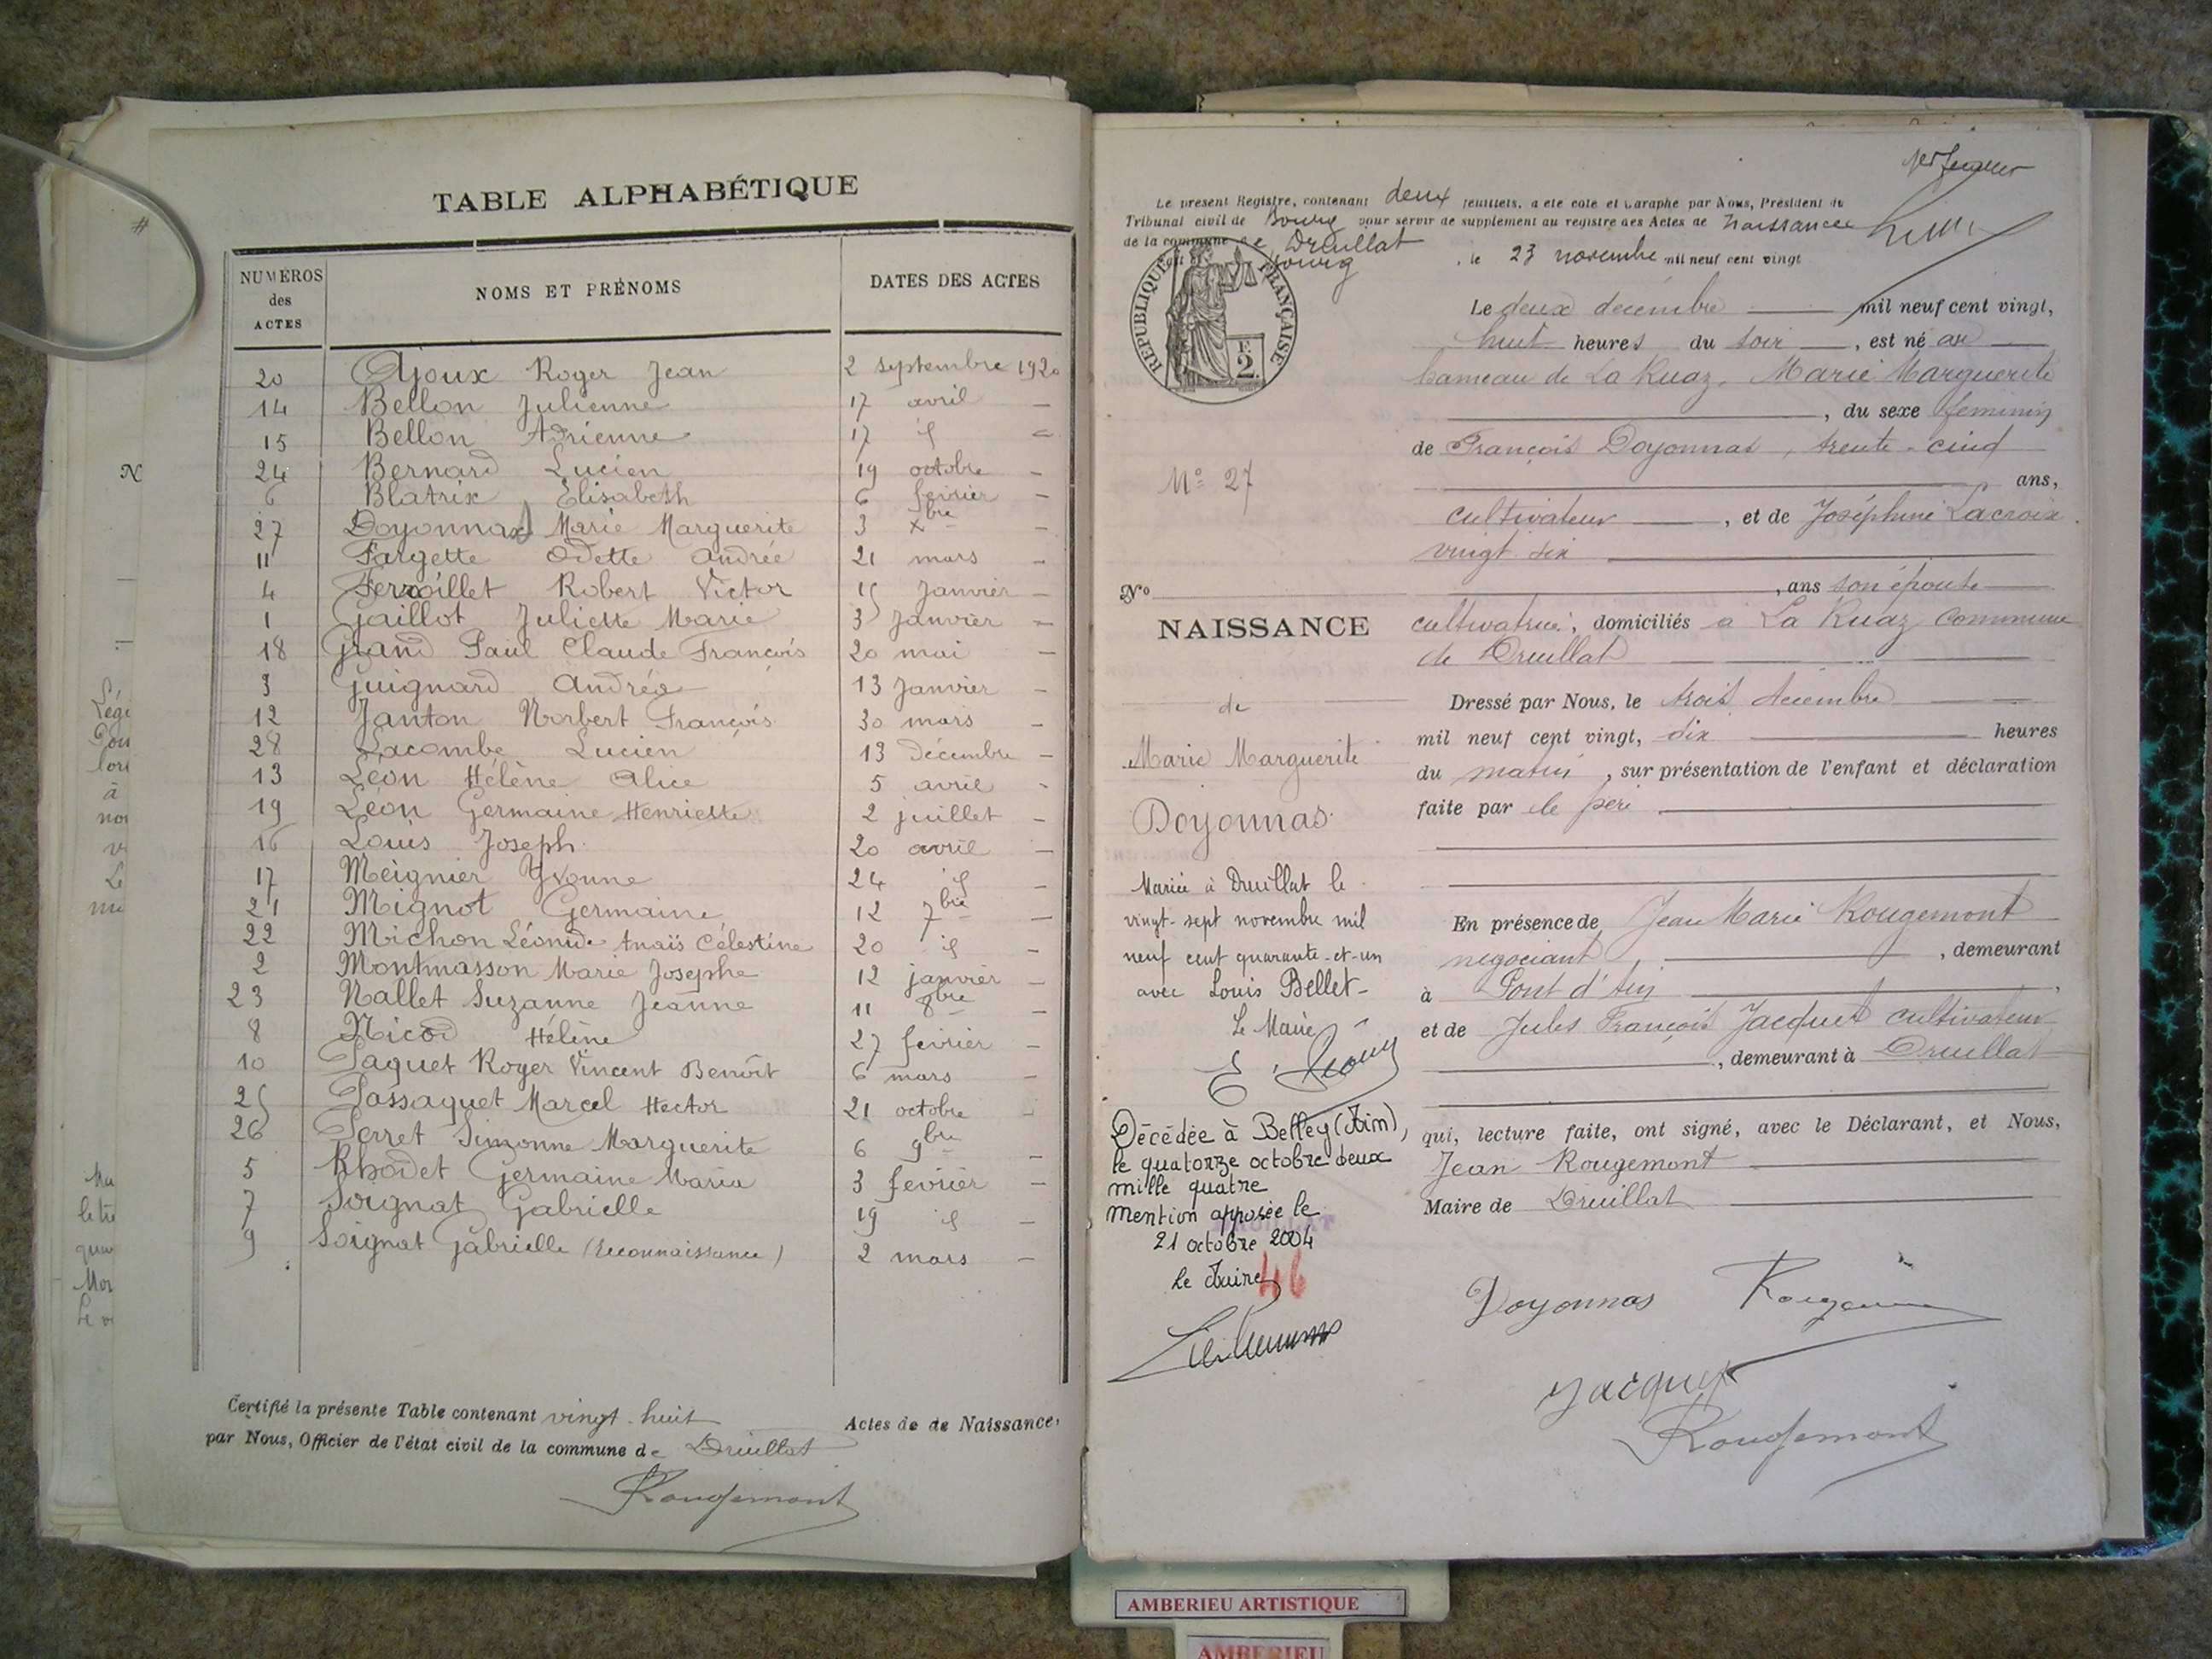 TABLE ALPHABÉTIQUE
NUMÉROS des ACTES NOMS ET PRÉNOMS DATES DES ACTES
20 Ajoux Roger Jean 2 septembre 1920
14 Bellon Julienne 17 avril —
15 Bellon Adrienne 17 id —
24 Bernard Lucien 19 octobre —
6 Blatrix Elisabeth 6 février —
27 Doyonnax Marie Marguerite 3 Xbre —
11 Fargette Odette Andrée 21 mars —
4 Fervoillet Robert Victor 15 Janvier —
1 Gaillot Juliette Marie 3 Janvier —
18 Grand Paul Claude François 20 mai —
3 Guignard Andréa 13 Janvier —
12 Janton Norbert François 30 mars —
28 Lacombe Lucien 13 Décembre —
13 Léon Hélène Alice 5 avril -
19 Léon Germaine Henriette 2 juillet —
16 Louis Joseph 20 avril —
17 Meignier Yvonne 24 id —
21 Mignot Germaine 12 7bre —
22 Michon Léonide Anaïs Célestine 20 id —
2 Montmasson Marie Josephe 12 janvier —
23 Nallet Suzanne Jeanne 11 8bre —
8 Nicod Hélène 27 février —
10 Paquet Roger Vincent Benoît 6 mars —
25 Passaquet Marcel Hector 21 octobre -
26 Perret Simonne Marguerite 6 9bre —
5 Rhodet Germaine Maria 3 février —
7 Soignat Gabrielle 19 id —
9 Soignat Gabrielle (Reconnaissance) 2 mars —
Certifié la présente Table contenant vingt-huit Actes de de Naissances
par Nous, Officier de l'état civil de la commune de Druillat
Rougemont
Le présent Registre, contenant deux feuillets, a été coté et paraphé par Nous, Président du
Tribunal civil de Bourg pour servir de supplément au registre des Actes de Naissances
de la commune de Druillat
Bourg, le 23 novembre mil neuf cent vingt
RÉPUBLIQUE FRANÇAISE
2
Le deux décembre mil neuf cent vingt,
huit heures du soir, est né au
hameau de La Ruaz, Marie Marguerite
, du sexe féminin
de François Doyonnas, trente-cinq
ans,
cultivateur, et de Joséphine Lacroix
vingt six
, ans son épouse
cultivatrice, domiciliés a La Ruaz commune
de Druillat
Dressé par Nous, le trois décembre
mil neuf cent vingt, dix heures
du matin, sur présentation de l'enfant et déclaration
faite par le père
En présence de Jean Marie Rougemont
négociant, demeurant
à Pont d'Ain,
et de Jules François Jacquet cultivateur
, demeurant à Druillat
qui, lecture faite, ont signé, avec le Déclarant, et Nous,
Jean Rougemont
Maire de Druillat
Doyonnas
Jacquet
Rougemont
N° 27
N°
NAISSANCE
de
Marie Marguerite
Doyonnas
Mariée à Druillat le
vingt-sept novembre mil
neuf cent quarante-et-un
avec Louis Bellet-
Le Maire
Décédée à Belley (Ain),
le quatorze octobre deux
mille quatre
mention apposée le
21 octobre 2004
le Maire
46
AMBERIEU ARTISTIQUE
AMBERIEU